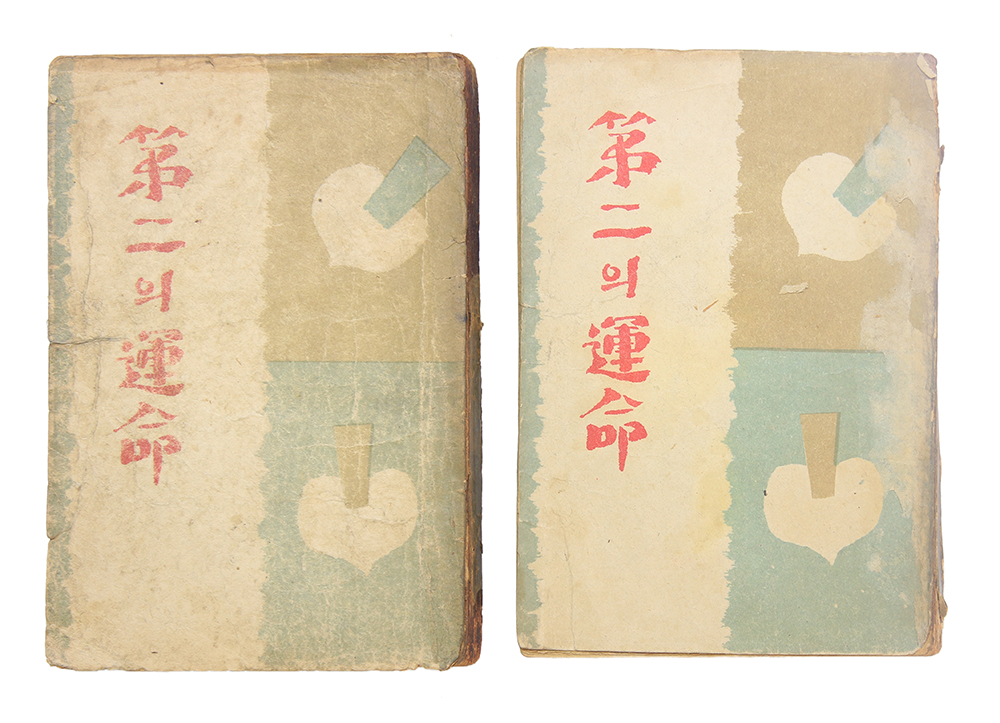 第二의運命
第二의運命